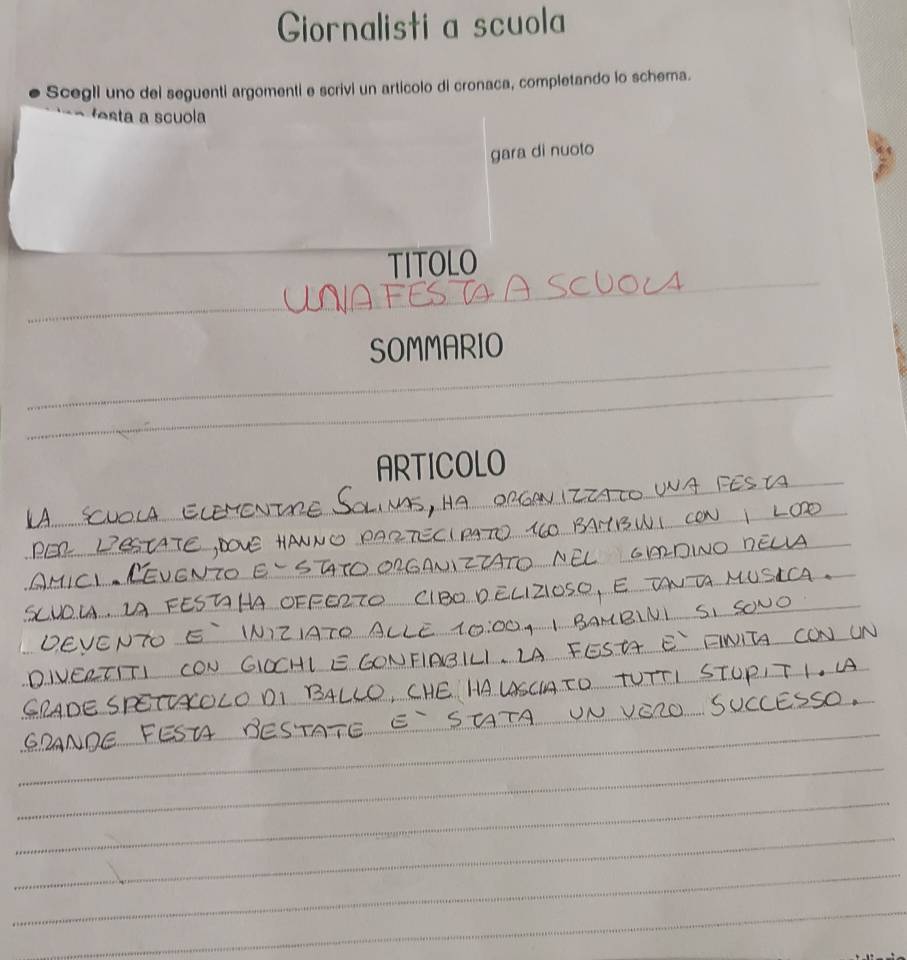 Giornalisti a scuola
Scegli uno dei seguenti argomenti e scrivi un articolo di cronaca, completando lo schema.
festa a scuola
gara di nuoto
TITOLO
UNA FESTA A SCUOLA
SOMMARIO
ARTICOLO
LA SCUOLA ELEMENTARE SOLINAS, HA ORGANIZZATO UNA FESTA
PER L'ESTATE, DOVE HANNO PARTECIPATO 160 BAMBINI CON I LORO
AMICI. L'EVENTO E' STATO ORGANIZZATO NEL GIARDINO DELLA
SCUOLA. LA FESTA HA OFFERTO CIBO DELIZIOSO, E TANTA MUSICA.
L'EVENTO E' INIZIATO ALLE 10:00, I BAMBINI SI SONO
DIVERTITI CON GIOCHI E GONFIABILI. LA FESTA E' FINITA CON UN
GRADE SPETTACOLO DI BALLO, CHE HA LASCIATO TUTTI STUPITI. LA
GRANDE FESTA D'ESTATE E' STATA UN VERO SUCCESSO.